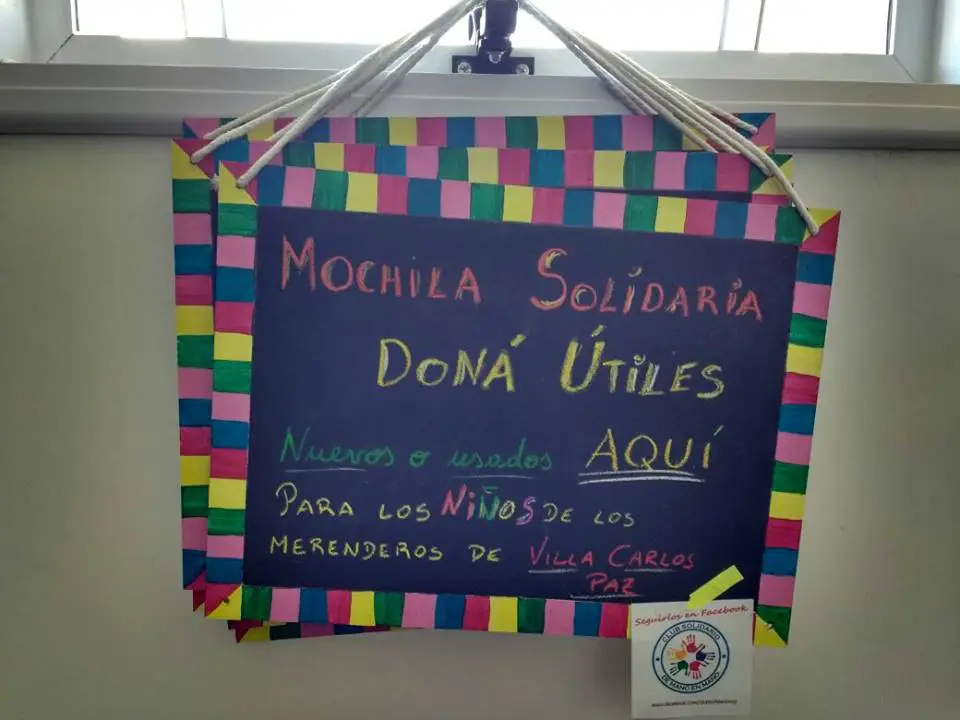 MOCHILA SOLÍDARIA
DONÁ ÚTILES
Nuevos o usados AQUÍ
PARA LOS NIÑOS DE LOS
MERENDEROS DE VILLA CARLOS
PAZ
Seguirlos en Facebook
CLUB SOLIDARIO
DE MANO EN MANO